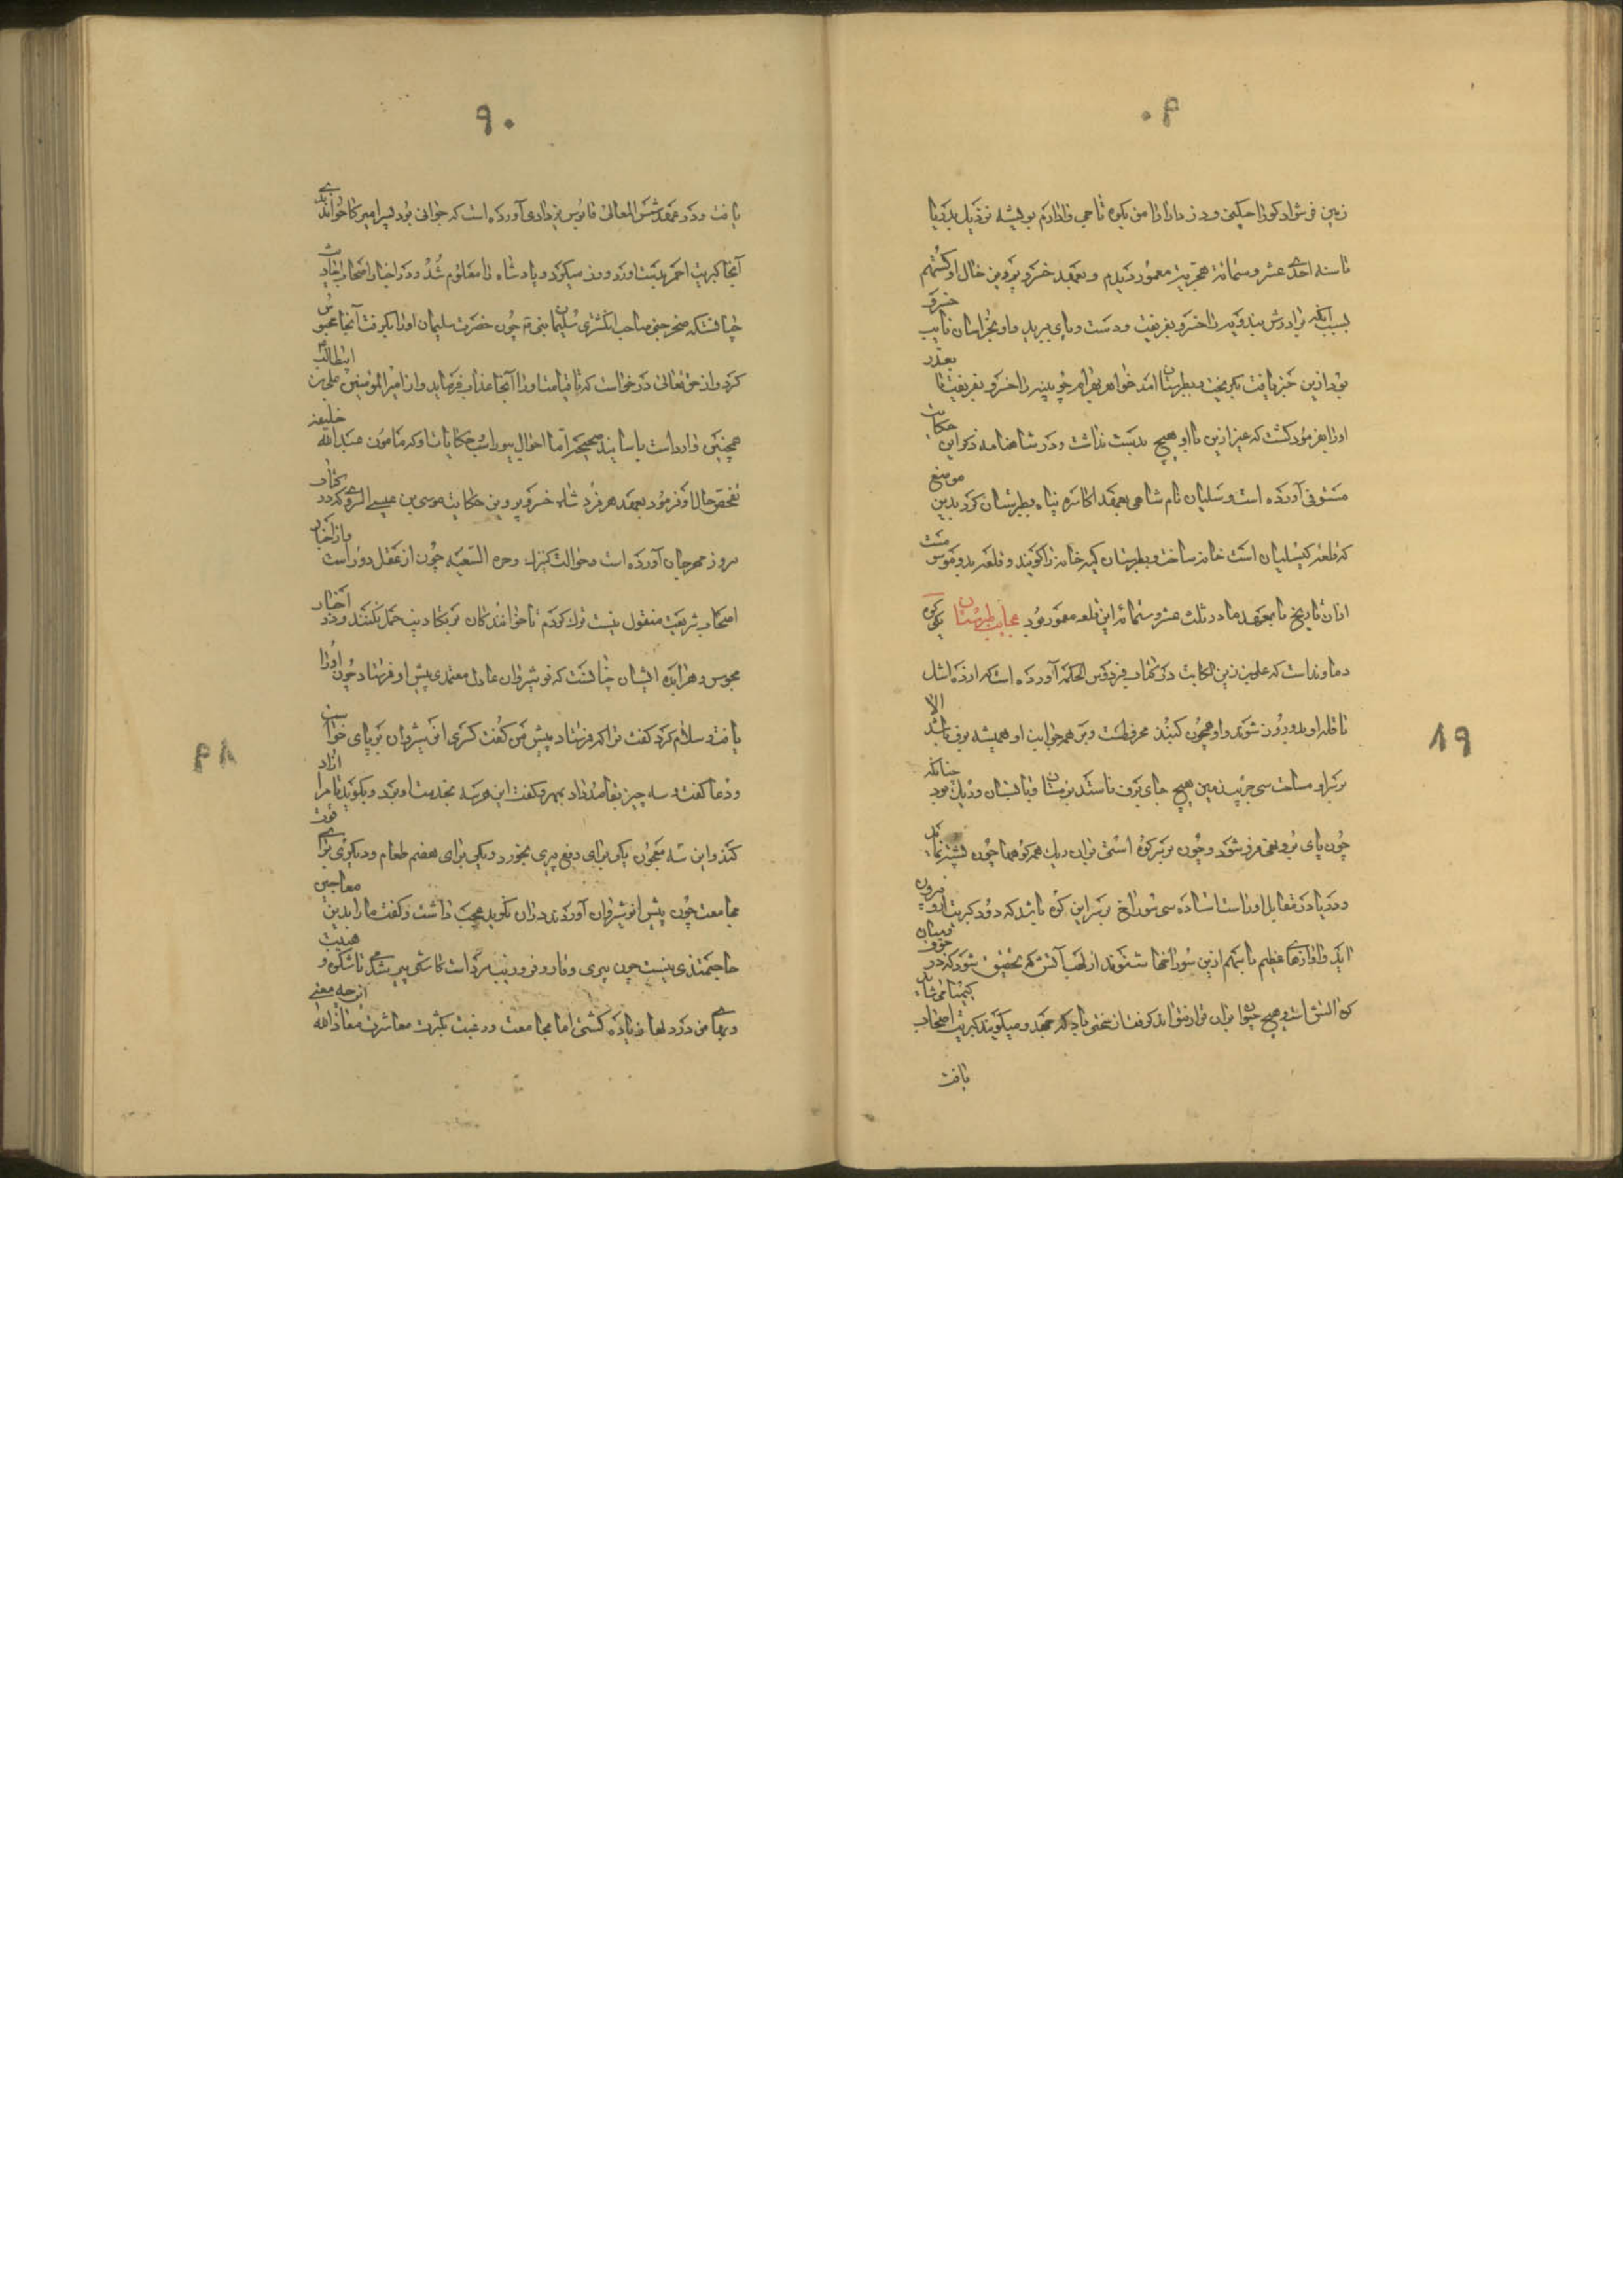 زمین فرشوادکوه را
تا سنه احدی عشر و ستمائة هجریه معمور دیدم و بعهد خسرو پرویز خال او گستهم
بسبب آنکه برادرش بندویه را خسرو بفریفت و دست و پای ببرید و او بخراسان نایب خسرو
بود ازین خبر یافت بگریخت بطبرستان آمد خواهر بهرام چوبینه را خسرو بفریفت تا بعذر
او را بفرمود کشت که غیر ازین با او هیچ بدست نداشت و در شاهنامه ذکر این حکایت
مستوفی آورده است و سلیان نام شاهی بعهد اکاسره پناه بطبرستان کرد بدین موضع
که قلعه کیسلیان است خانه ساخت و بطبرستان کیه خانه را گویند و قلعه بدو منسوب
ازان تاریخ تا بعهد ما در ثلث عشر و ستمائه این قلعه معمور بود عجایب طبرستان یکی کوه
دماوند است که علی بن زین الکاتب در کتاب فردوس الحکمه آورده است که از ده اشل
تا قله او بدو روز شوند و او همچون گنبذ مخروطست و بر همه جوانب او همیشه برف باشد الا
بر سر او مساحت سی جریب زمین هیچ جای برف نایستد بزمستان و تابستان و ریگ بود چنانکه
چون پای برو نهی فرو شود و چون بر سر کوه استی بران ریگ همه کوهها چون پشته نماید
و دریا در مقابل او راست استاده سی سوراخ بر سر این کوه باشد که دود کبریت ازو بیرون
آید و آوازهای عظیم با سهم ازین سوراخها شنوند از لهب آتش که تحقیق شود که در میان جوف
کوه آتش است و هیچ حیوان بران قرار نتواند گرفت از سختی باد که جهد و میگویند کبریت احمر اصحاب کیمیا می شاید
یافت
۹۰
یافت و در عهد شمس المعالی قابوس یزدادی آورده است که جوانی بود پسر امیرکا خواندندی
آنجا کبریت احمر بدست آورد و زر میکرد و پادشاه را معلوم شد و در اخبار اصحاب احادیث
چنانست که صخر جنی صاحب انگشتری سلیمان نبی چون حضرت سلیمان او را بگرفت آنجا محبوس
کرد و از حق تعالی درخواست که تا قیامت او را آنجا عذاب فرماید و از امیر المؤمنین علی بن ابیطالب
همچنین وارد است باسانید صحیحه اما احوال بیوراسپ حکایات او که مامون عبد الله خلیفه
تفحص حال او فرمود بعهد هرمزد شاه خسرو پرویز حکایت موسی بن عیسی الکسروی که در کتاب
نیروز و مهرجان آورده است
اصحاب شریعت منقول نیست ترک کردم تا خوانندگان بر تکاذیب حمل نکنند و در اخبار
مجوس و هرابده ایشان چنانست که نوشیروان عادل معتمدی پیش او فرستاد چون او را
یافت و سلام کرد گفت ترا که فرستاد پیش من گفت کسری انوشیروان بر پای خواست
و دعا گفت و سه چیز بقاصد داد بمهر و گفت این هر سه بخدمت او برد و بگوید تا مرا آزاد
کند و این سه معجون یکی برای دفع پیری بخورد و یکی برای هضم طعام و دیگری برای قوت
مجامعت چون پیش انوشیروان آوردند دران نگرید عجب داشت و گفت ما را بدین معاجین
حاجتمندی نیست چون پیری وقار و فر و زینت مرد است تا شکوه و هیبت
مجامعت و رغبت بکثرت معاشرت معاذ الله ازین چه معنی